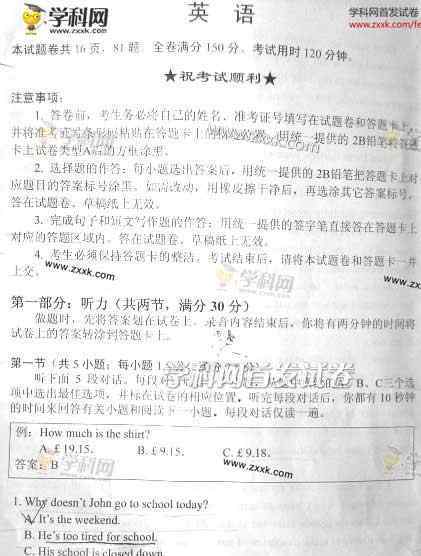 学科网
www.zxxk.com
英 语
学科网首发试卷
www.zxxk.com/fe
本试题卷共16页，81题。全卷满分150分。考试用时120分钟。
★祝考试顺利★
注意事项：
1. 答卷前，考生务必将自己的姓名、准考证号填写在试题卷和答题卡上，
并将准考证号条形码粘贴在答题卡上的指定位置。用统一提供的2B铅笔将答题
卡上试卷类型A后的方框涂黑。
2. 选择题的作答：每小题选出答案后，用统一提供的2B铅笔把答题卡上对
应题目的答案标号涂黑。如需改动，用橡皮擦干净后，再选涂其它答案标号。
答在试题卷、草稿纸上无效。
3. 完成句子和短文写作题的作答：用统一提供的签字笔直接答在答题卡上对
应的答题区域内。答在试题卷、草稿纸上无效。
4. 考生必须保持答题卡的整洁。考试结束后，请将本试题卷和答题卡一并
上交。
学科网
www.zxxk.com
第一部分：听力（共两节，满分30分）
做题时，先将答案划在试卷上。录音内容结束后，你将有两分钟的时间将
试卷上的答案转涂到答题卡上。
第一节（共5小题；每小题1.5分，满分
学科网首发试卷
听下面5段对话。每段对 B、C三个选
项中选出最佳选项，并标在试卷的相应位置。听完每段对话后，你都有10秒钟
的时间来回答有关小题和阅读下一小题。每段对话仅读一遍。
例：How much is the shirt?
A. £ 19.15. B. £ 9.15. C. £ 9.18.
答案：B
www.zxxk.com
学科网
www.zxxk.com
1. Why doesn't John go to school today?
A. It's the weekend.
B. He's too tired for school.
C. His school is closed down.